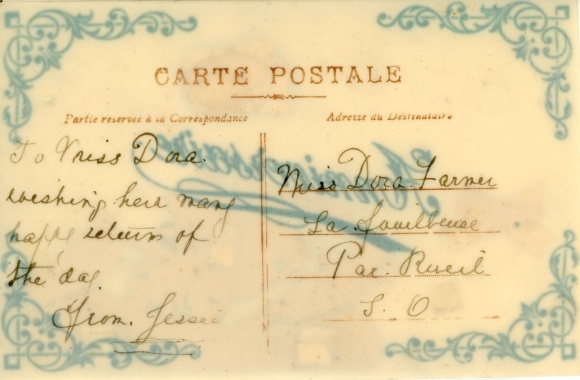 CARTE POSTALE
Partie reservée à la Correspondance
Adresse du Destinataire
To Miss Dora
wishing her many
happy returns of
the day.
From. Jessie
Miss Dora Farmer
La Fouilleuse
Par. Rueil
S. O
Anniversaire